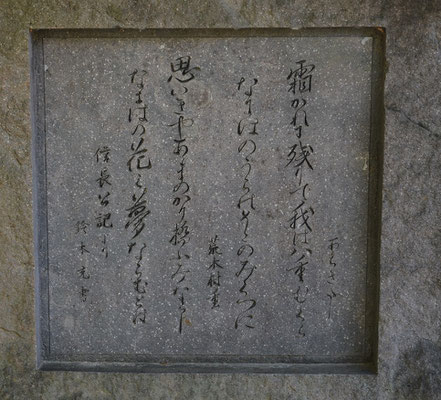 あらきたし
霜かれに残りて我は八重むくら
なにはのうらのそこのみくつに
荒木村重
思いきやあまのかけ橋ふみならし
なにはの花も夢ならむとは
信長公記より
鈴木